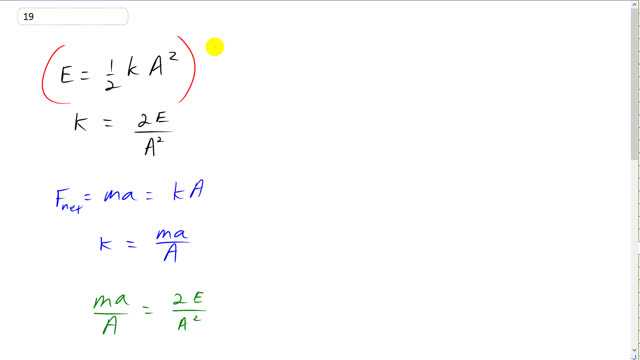 19
(E = 1/2 k A²)
k = 2E/A²
Fnet = ma = kA
k = ma/A
ma/A = 2E/A²